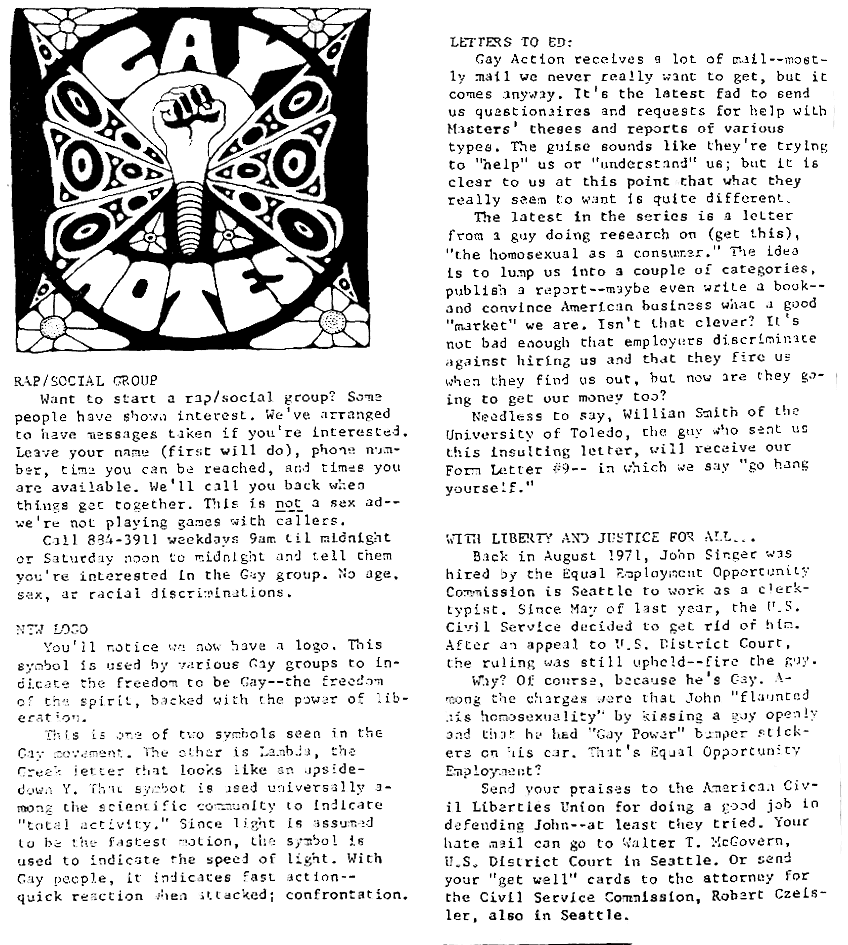 GAY
NOTES
RAP/SOCIAL GROUP
Want to start a rap/social group? Some
people have shown interest. We've arranged
to have messages taken if you're interested.
Leave your name (first will do), phone num-
ber, time you can be reached, and times you
are available. We'll call you back when
things get together. This is not a sex ad--
we're not playing games with callers.
Call 884-3911 weekdays 9am til midnight
or Saturday noon to midnight and tell them
you're interested in the Gay group. No age,
sex, or racial discriminations.
NEW LOGO
You'll notice we now have a logo. This
symbol is used by various Gay groups to in-
dicate the freedom to be Gay--the freedom
of the spirit, backed with the power of lib-
eration.
This is one of two symbols seen in the
Gay movement. The other is Lambda, the
Greek letter that looks like an upside-
down Y. That symbol is used universally a-
mong the scientific community to indicate
"total activity." Since light is assumed
to be the fastest motion, the symbol is
used to indicate the speed of light. With
Gay people, it indicates fast action--
quick reaction when attacked; confrontation.
LETTERS TO ED:
Gay Action receives a lot of mail--most-
ly mail we never really want to get, but it
comes anyway. It's the latest fad to send
us questionaires and requests for help with
Masters' theses and reports of various
types. The guise sounds like they're trying
to "help" us or "understand" us; but it is
clear to us at this point that what they
really seem to want is quite different.
The latest in the series is a letter
from a guy doing research on (get this),
"the homosexual as a consumer." The idea
is to lump us into a couple of categories,
publish a report--maybe even write a book--
and convince American business what a good
"market" we are. Isn't that clever? It's
not bad enough that employers discriminate
against hiring us and that they fire us
when they find us out, but now are they go-
ing to get our money too?
Needless to say, Willian Smith of the
University of Toledo, the guy who sent us
this insulting letter, will receive our
Form Letter #9-- in which we say "go hang
yourself."
WITH LIBERTY AND JUSTICE FOR ALL...
Back in August 1971, John Singer was
hired by the Equal Employment Opportunity
Commission is Seattle to work as a clerk-
typist. Since May of last year, the U.S.
Civil Service decided to get rid of him.
After an appeal to U.S. District Court,
the ruling was still upheld--fire the guy.
Why? Of course, because he's Gay. A-
mong the charges were that John "flaunted
his homosexuality" by kissing a guy openly
and that he had "Gay Power" bumper stick-
ers on his car. That's Equal Opportunity
Employment?
Send your praises to the American Civ-
il Liberties Union for doing a good job in
defending John--at least they tried. Your
hate mail can go to Walter T. McGovern,
U.S. District Court in Seattle. Or send
your "get well" cards to the attorney for
the Civil Service Commission, Robert Czeis-
ler, also in Seattle.